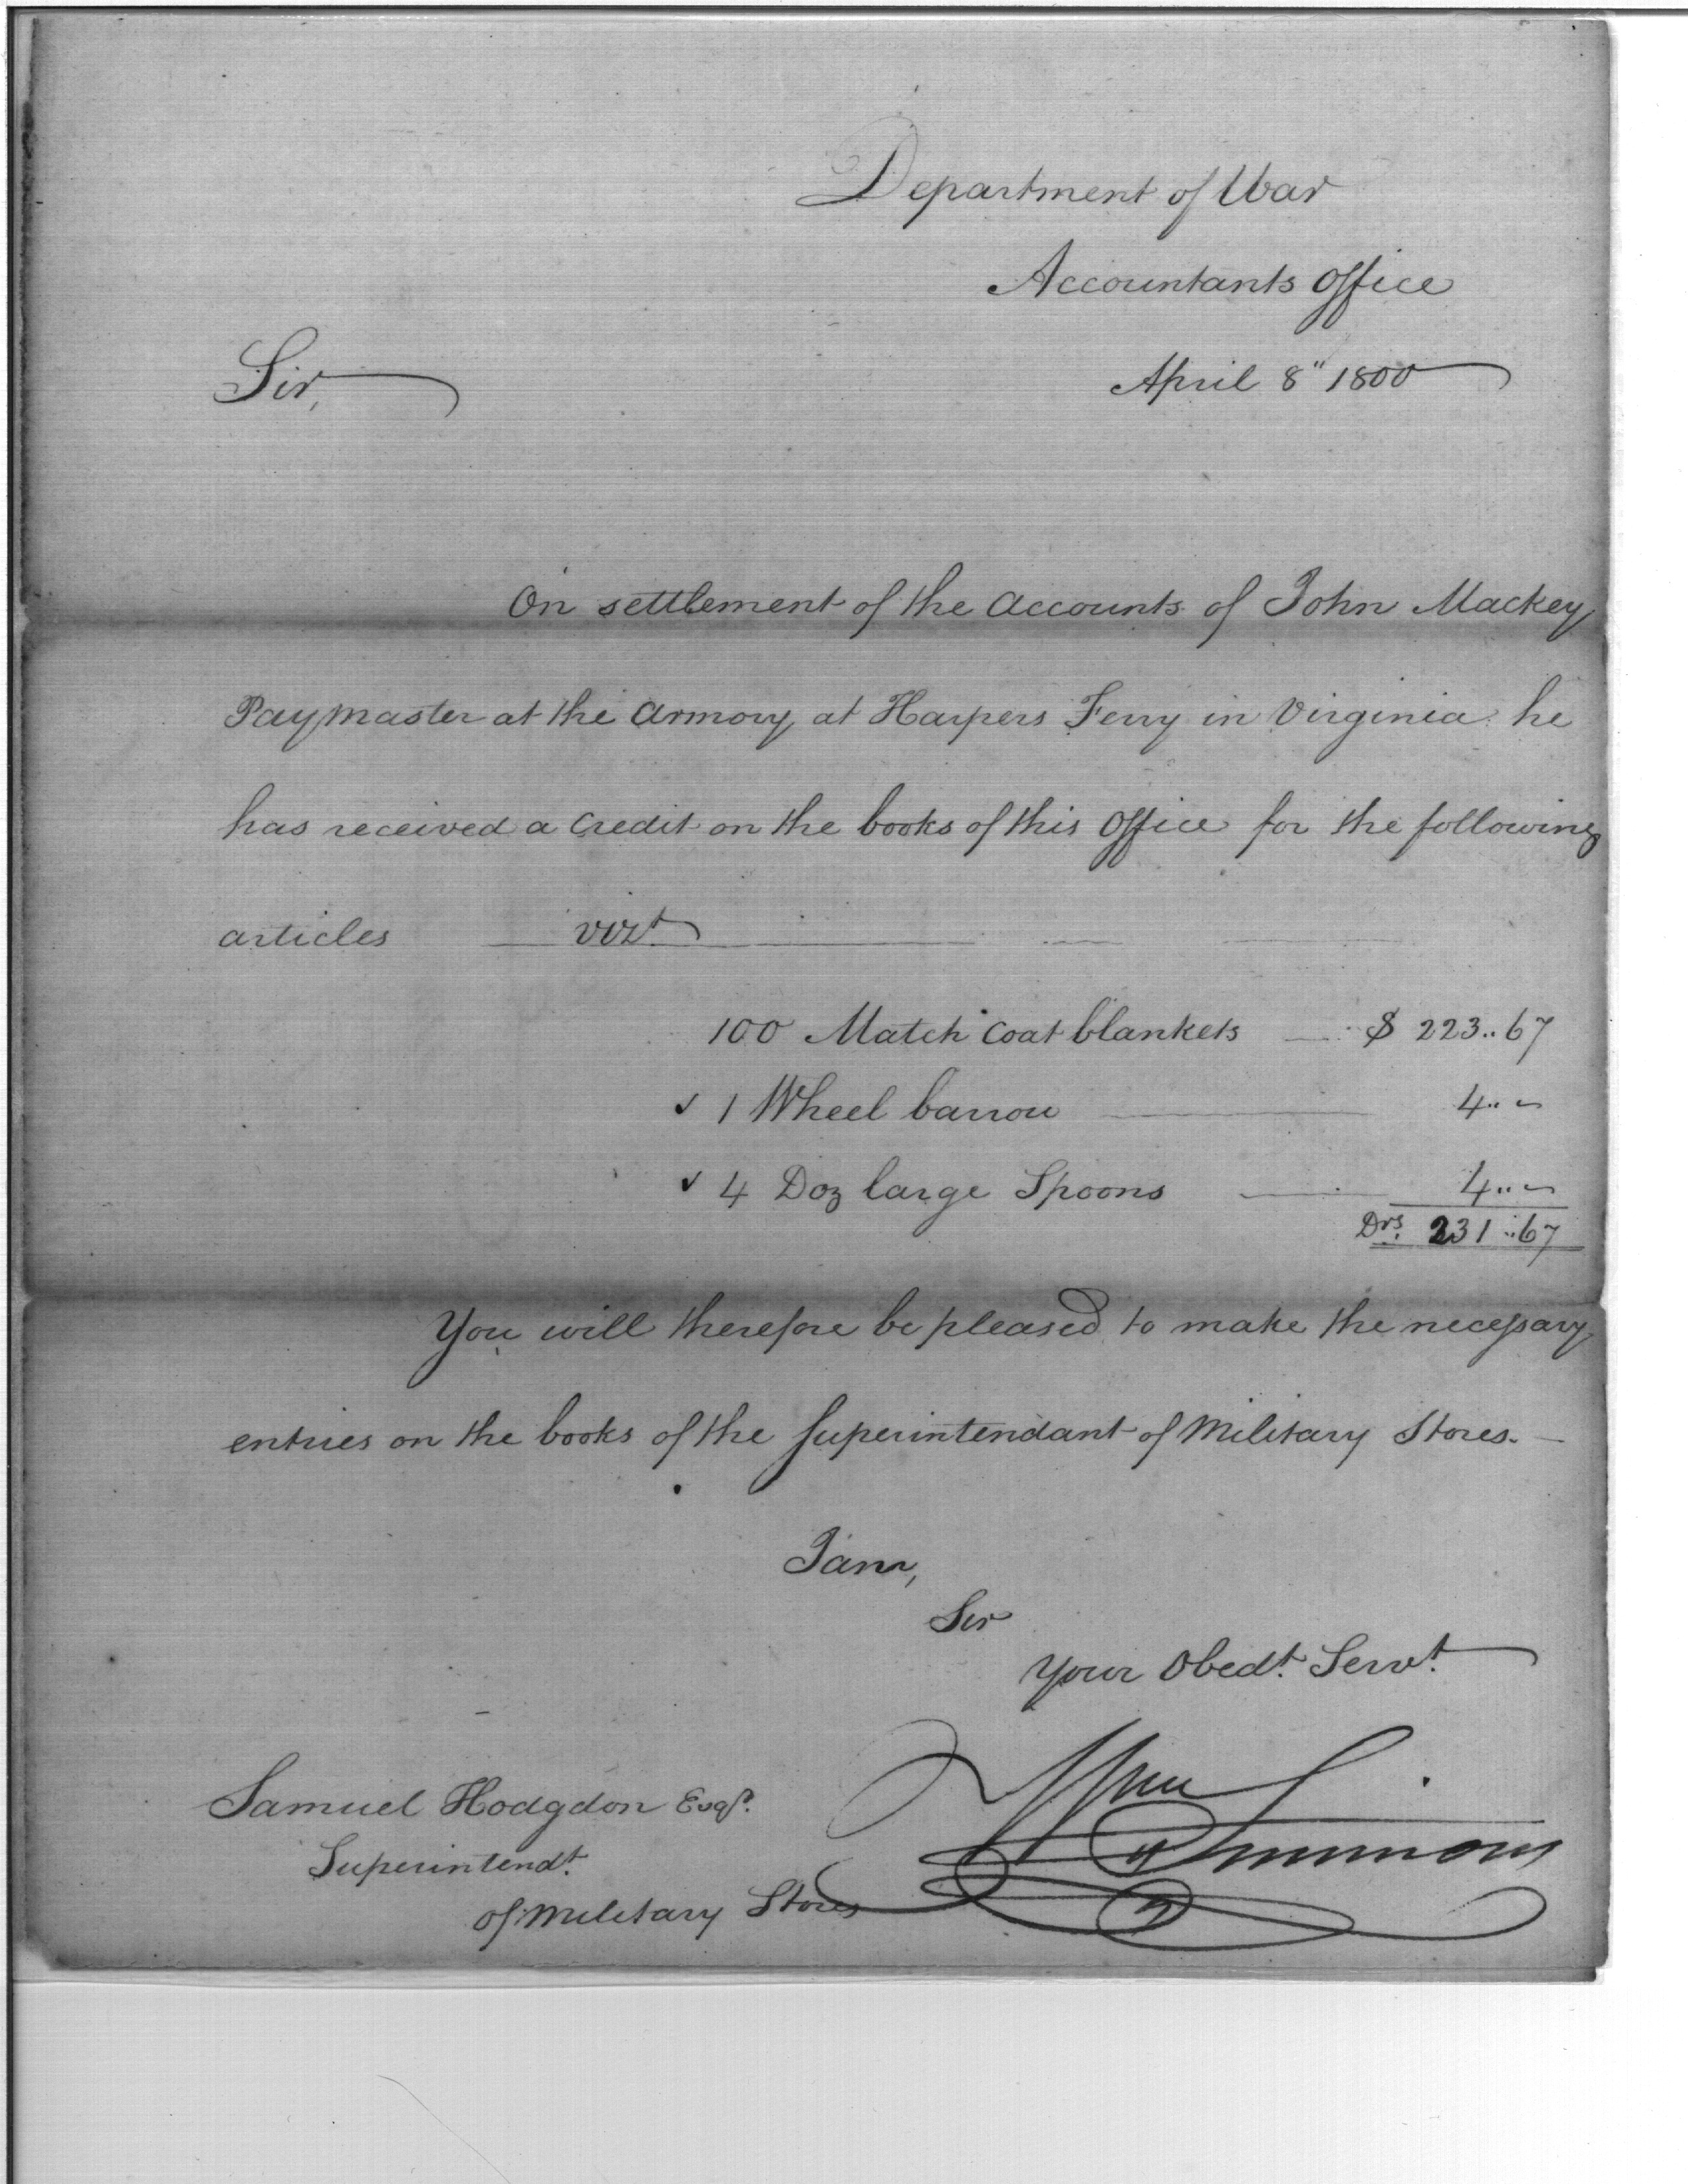 Department of War
Accountants Office
April 8" 1800
Sir,
On settlement of the accounts of John Mackey
Paymaster at the armory at Harpers Ferry in Virginia he
has received a credit on the books of this Office for the following
articles vizt
100 Match coat blankets $ 223..67
✓ 1 Wheel barrow 4.. ~
✓ 4 Doz large Spoons 4.. ~
Drs. 231..67
You will therefore be pleased to make the necessary
entries on the books of the Superintendant of Military Stores. —
I am,
Sir
Your Obedt. Servt.
Wm Simmons
Samuel Hodgdon Esqr.
Superintendt.
of Military Stores